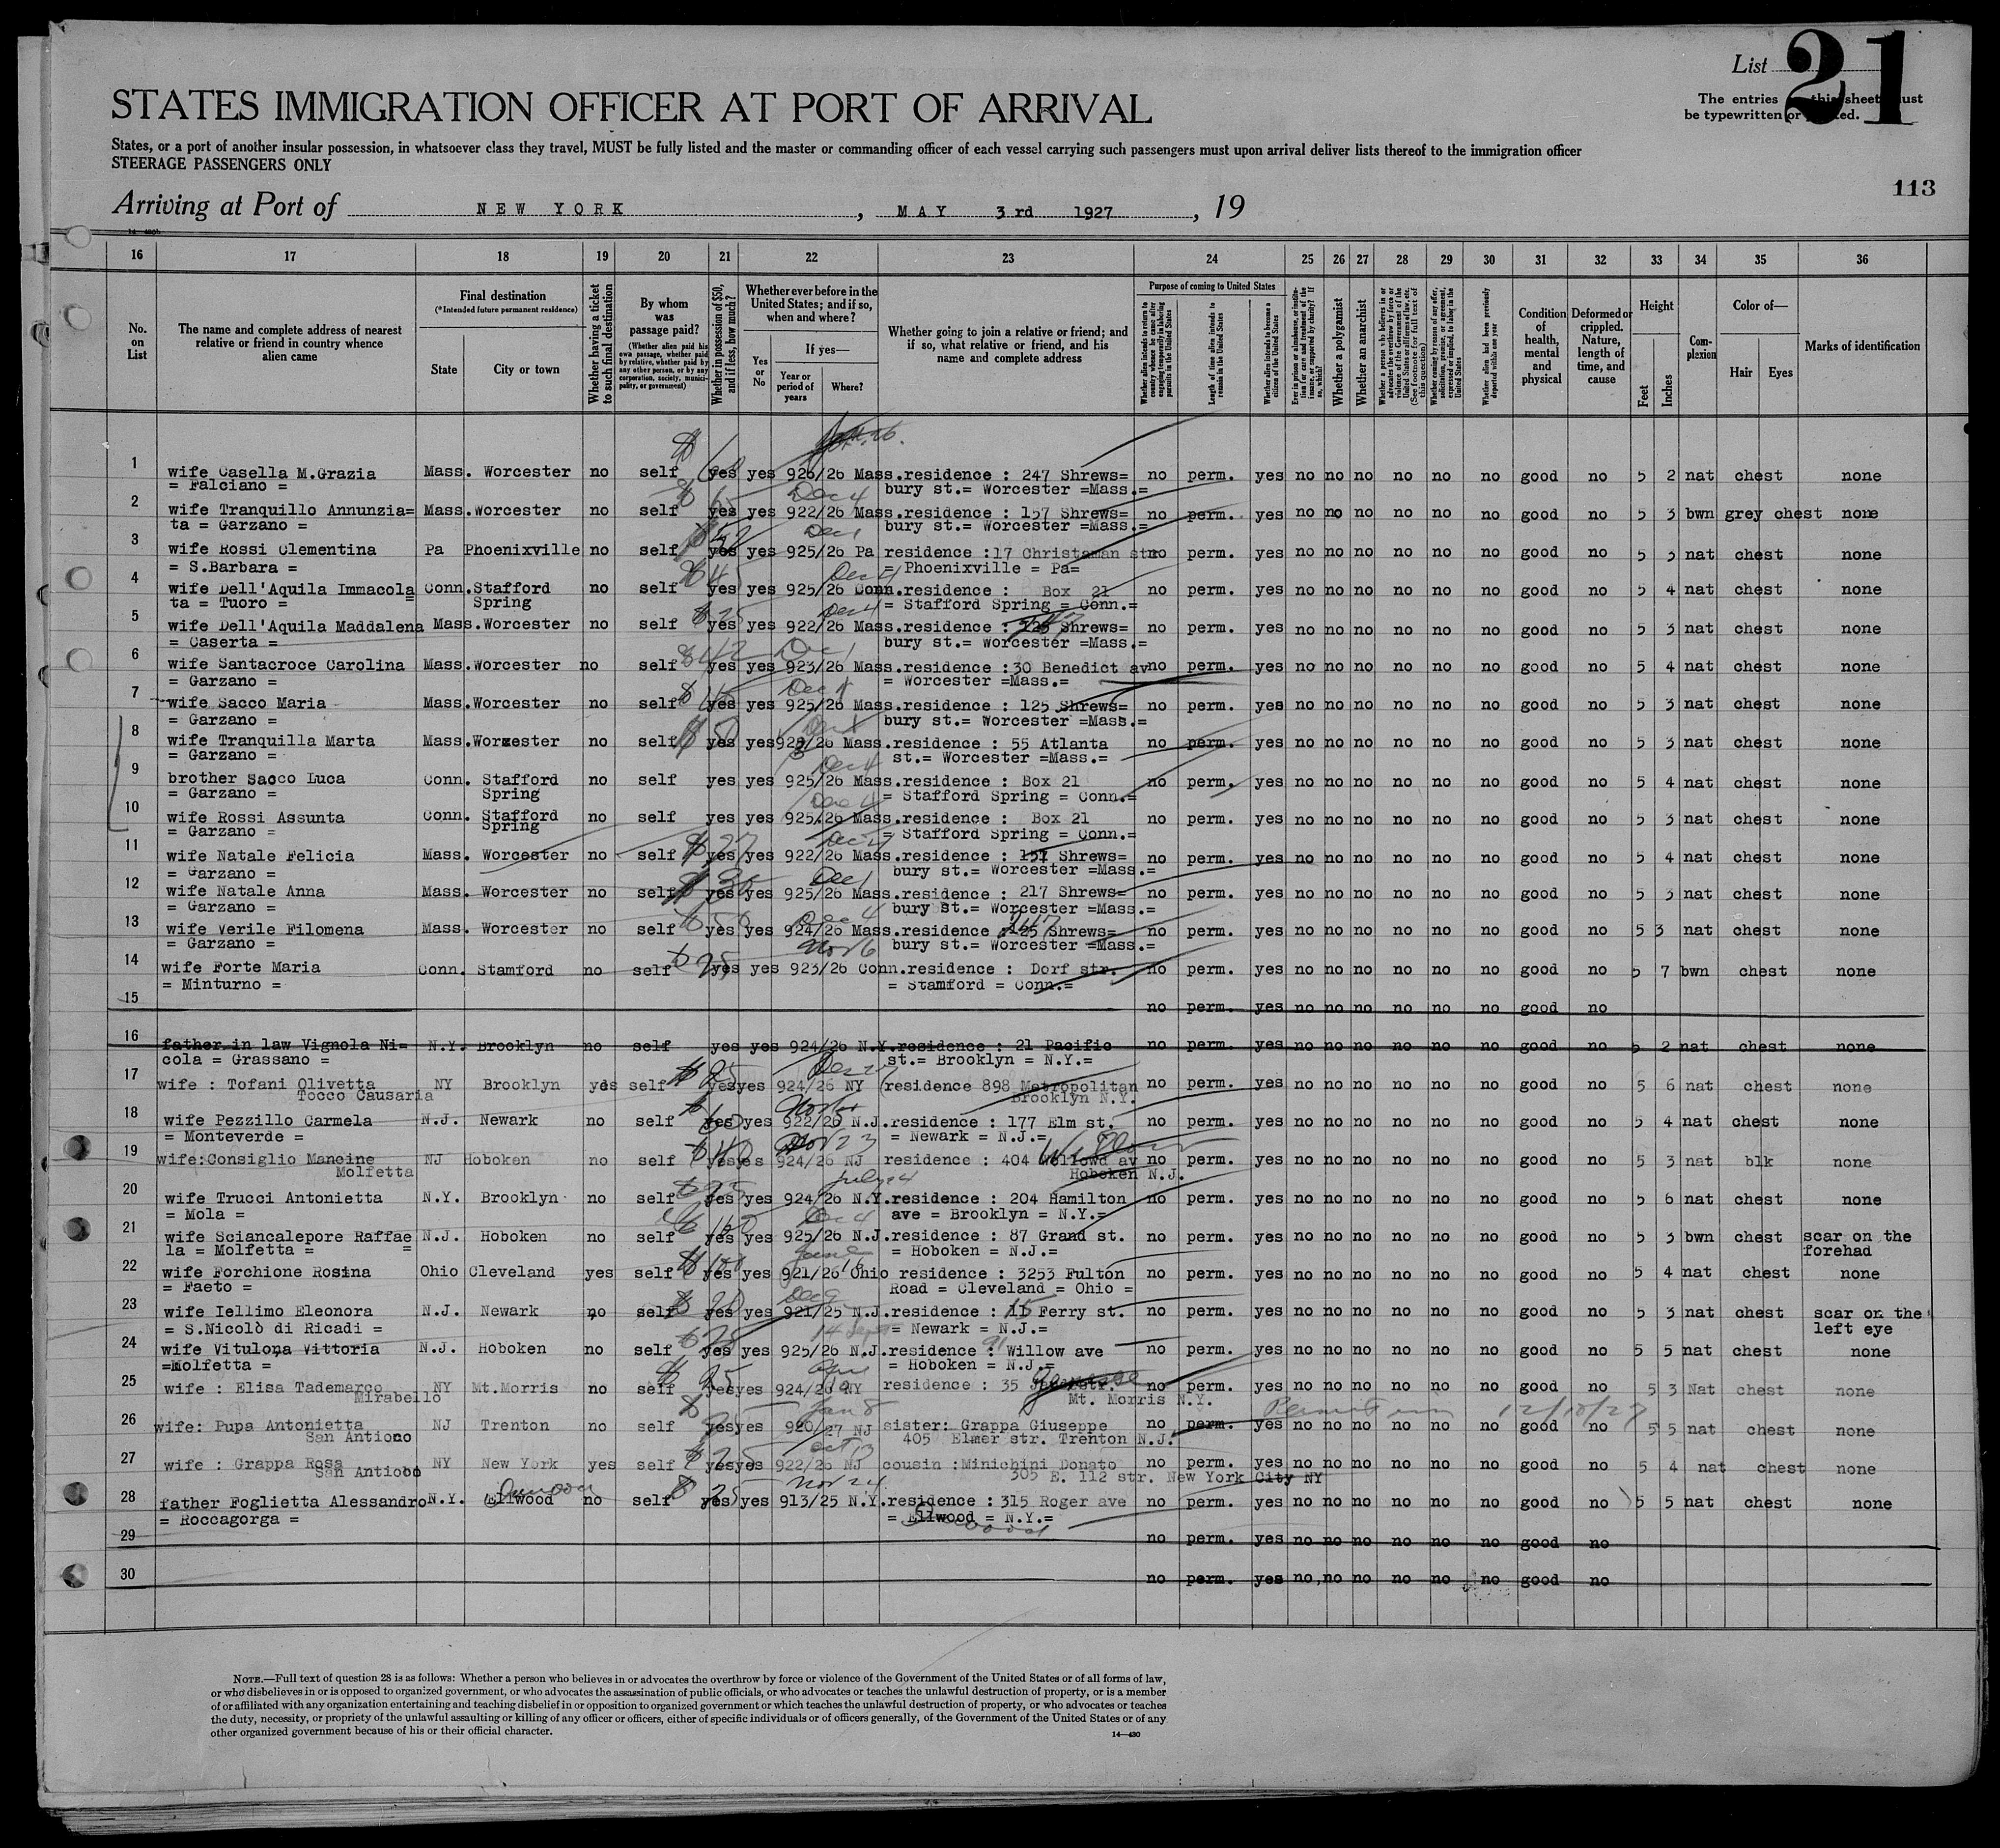 List 21
The entries on this sheet must
be typewritten or printed.
STATES IMMIGRATION OFFICER AT PORT OF ARRIVAL
States, or a port of another insular possession, in whatsoever class they travel, MUST be fully listed and the master or commanding officer of each vessel carrying such passengers must upon arrival deliver lists thereof to the immigration officer
STEERAGE PASSENGERS ONLY
113
Arriving at Port of NEW YORK, MAY 3rd 1927, 19
16 17 18 19 20 21 22 23 24 25 26 27 28 29 30 31 32 33 34 35 36
No. on List
The name and complete address of nearest relative or friend in country whence alien came
Final destination
(*Intended future permanent residence)
State
City or town
Whether having a ticket to such final destination
By whom was passage paid?
(Whether alien paid his own passage, whether paid by relative, whether paid by any other person, or by any corporation, society, municipality, or government)
Whether in possession of $50, and if less, how much?
Whether ever before in the United States; and if so, when and where?
Yes or No
If yes—
Year or period of years
Where?
Whether going to join a relative or friend; and if so, what relative or friend, and his name and complete address
Purpose of coming to United States
Length of time alien intends to remain in the United States
Whether alien intends to become a citizen of the United States
Whether a polygamist
Whether an anarchist
Whether alien had been previously deported within one year
Condition of health, mental and physical
Deformed or crippled. Nature, length of time, and cause
Height
Feet
Inches
Complexion
Color of—
Hair
Eyes
Marks of identification
1 wife Casella M.Grazia Mass. Worcester no self yes yes 926/26 Mass. residence : 247 Shrews= no perm. yes no no no no no no good no 5 2 nat chest none
= Falciano = bury st.= Worcester =Mass.=
2 wife Tranquillo Annunzia= Mass. Worcester no self yes yes 922/26 Mass. residence : 157 Shrews= no perm. yes no no no no no no good no 5 3 bwn grey chest none
ta = Garzano = bury st.= Worcester =Mass.=
3 wife Rossi Clementina Pa Phoenixville no self yes yes 925/26 Pa residence :17 Christaman str no perm. yes no no no no no no good no 5 3 nat chest none
= S.Barbara = = Phoenixville = Pa=
4 wife Dell'Aquila Immacola Conn. Stafford no self yes yes 925/26 Conn. residence : Box 21 no perm. yes no no no no no no good no 5 4 nat chest none
ta = Tuoro = Spring = Stafford Spring = Conn.=
5 wife Dell'Aquila Maddalena Mass. Worcester no self yes yes 922/26 Mass. residence : Shrews= no perm. yes no no no no no no good no 5 3 nat chest none
= Caserta = bury st.= Worcester =Mass.=
6 wife Santacroce Carolina Mass. Worcester no self yes yes 923/26 Mass. residence :30 Benedict av no perm. yes no no no no no no good no 5 4 nat chest none
= Garzano = = Worcester =Mass.=
7 wife Sacco Maria Mass. Worcester no self yes yes 925/26 Mass. residence : 125 Shrews= no perm. yes no no no no no no good no 5 3 nat chest none
= Garzano = bury st.= Worcester =Mass.=
8 wife Tranquilla Marta Mass. Worxester no self yes yes 923/26 Mass. residence : 55 Atlanta no perm. yes no no no no no no good no 5 3 nat chest none
= Garzano = st.= Worcester =Mass.=
9 brother Sacco Luca Conn. Stafford no self yes yes 925/26 Mass. residence : Box 21 no perm. yes no no no no no no good no 5 4 nat chest none
= Garzano = Spring = Stafford Spring = Conn.=
10 wife Rossi Assunta Conn. Stafford no self yes yes 925/26 Mass. residence : Box 21 no perm. yes no no no no no no good no 5 3 nat chest none
= Garzano = Spring = Stafford Spring = Conn.=
11 wife Natale Felicia Mass. Worcester no self yes yes 922/26 Mass. residence : 157 Shrews= no perm. yes no no no no no no good no 5 4 nat chest none
= Garzano = bury st.= Worcester =Mass.=
12 wife Natale Anna Mass. Worcester no self yes yes 925/26 Mass. residence : 217 Shrews= no perm. yes no no no no no no good no 5 3 nat chest none
= Garzano = bury st.= Worcester =Mass.=
13 wife Verile Filomena Mass. Worcester no self yes yes 924/26 Mass. residence : 247 Shrews= no perm. yes no no no no no no good no 5 3 nat chest none
= Garzano = bury st.= Worcester =Mass.=
14 wife Forte Maria Conn. Stamford no self yes yes 923/26 Conn. residence : Dorf str. no perm. yes no no no no no no good no 5 7 bwn chest none
= Minturno = = Stamford = Conn.=
15 no perm. yes no no no no no no good no
16 father in law Vignola Ni= N.Y. Brooklyn no self yes yes 924/26 N.Y. residence : 21 Pacific no perm. yes no no no no no no good no 5 2 nat chest none
cola = Grassano = st.= Brooklyn = N.Y.=
17 wife : Tofani Olivetta NY Brooklyn yes self yes yes 924/26 NY (residence 898 Metropolitan no perm. yes no no no no no no good no 5 6 nat chest none
Tocco Causaria Brooklyn N.Y.
18 wife Pezzillo Carmela N.J. Newark no self yes yes 922/26 N.J. residence : 177 Elm st. no perm. yes no no no no no no good no 5 4 nat chest none
= Monteverde = = Newark = N.J.=
19 wife:Consiglio Mancine NJ Hoboken no self yes yes 924/26 NJ residence : 404 Willowd av no perm. yes no no no no no no good no 5 3 nat blk none
Molfetta Hoboken N.J.
20 wife Trucci Antonietta N.Y. Brooklyn no self yes yes 924/26 N.Y. residence : 204 Hamilton no perm. yes no no no no no no good no 5 6 nat chest none
= Mola = ave = Brooklyn = N.Y.=
21 wife Sciancalepore Raffae N.J. Hoboken no self yes yes 925/26 N.J. residence : 87 Grand st. no perm. yes no no no no no no good no 5 3 bwn chest scar on the
la = Molfetta = = = Hoboken = N.J.= forehad
22 wife Forchione Rosina Ohio Cleveland yes self yes yes 921/26 Ohio residence : 3253 Fulton no perm. yes no no no no no no good no 5 4 nat chest none
= Faeto = Road = Cleveland = Ohio =
23 wife Iellimo Eleonora N.J. Newark no self yes yes 921/25 N.J. residence : 11 Ferry st. no perm. yes no no no no no no good no 5 3 nat chest scar on the
= S.Nicolò di Ricadi = = Newark = N.J.= left eye
24 wife Vitulona Vittoria N.J. Hoboken no self yes yes 925/26 N.J. residence : 91 Willow ave no perm. yes no no no no no no good no 5 5 nat chest none
=Molfetta = = Hoboken = N.J.=
25 wife : Elisa Tademarco NY Mt.Morris no self yes yes 924/26 NY residence : 35 Genesse no perm. yes no no no no no no good no 5 3 Nat chest none
Mirabello Mt. Morris N.Y.
26 wife: Pupa Antonietta NJ Trenton no self yes yes 920/27 NJ sister: Grappa Giuseppe no perm. yes no no no no no no good no 5 5 nat chest none
San Antioco 405 Elmer str. Trenton N.J. 12/18/27
27 wife : Grappa Rosa NY New York yes self yes yes 922/26 NJ cousin :Minichini Donato no perm. yes no no no no no no good no 5 4 nat chest none
San Antioco 305 E. 112 str. New York City NY
28 father Foglietta Alessandro N.Y. Ellwood no self yes yes 913/25 N.Y. residence : 315 Roger ave no perm. yes no no no no no no good no 5 5 nat chest none
= Roccagorga = = Ellwood = N.Y.=
29 no perm. yes no no no no no no good no
30 no perm. yes no no no no no no good no
NOTE.—Full text of question 28 is as follows: Whether a person who believes in or advocates the overthrow by force or violence of the Government of the United States or of all forms of law,
or who disbelieves in or is opposed to organized government, or who advocates the assassination of public officials, or who advocates or teaches the unlawful destruction of property, or is a member
of or affiliated with any organization entertaining and teaching disbelief in or opposition to organized government or which teaches the unlawful destruction of property, or who advocates or teaches
the duty, necessity, or propriety of the unlawful assaulting or killing of any officer or officers, either of specific individuals or of officers generally, of the Government of the United States or of any
other organized government because of his or their official character.
14—430